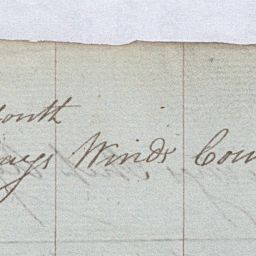 onth
ays Winds Cou